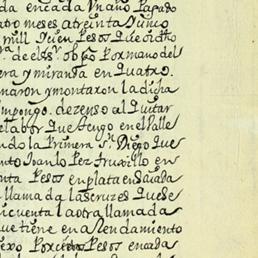 da encada Vnaño Pagado
atro meses atreinta Yuno
mill Yuien Pesos Queldtho
de obpo Por mano del
era y miranta en Quatro
maron y montaron la dicha
Impongo. dezenso al Quitar
elabor Que tengo en el Valle
ando la Primera Sn Diego que
ento Juan lo Pez trugillo en
nta Pesos en plata en
llamada lascruzes Quese
cicuenta la otra llamada
que tiene en aRendamiento
Por Pesos en cada